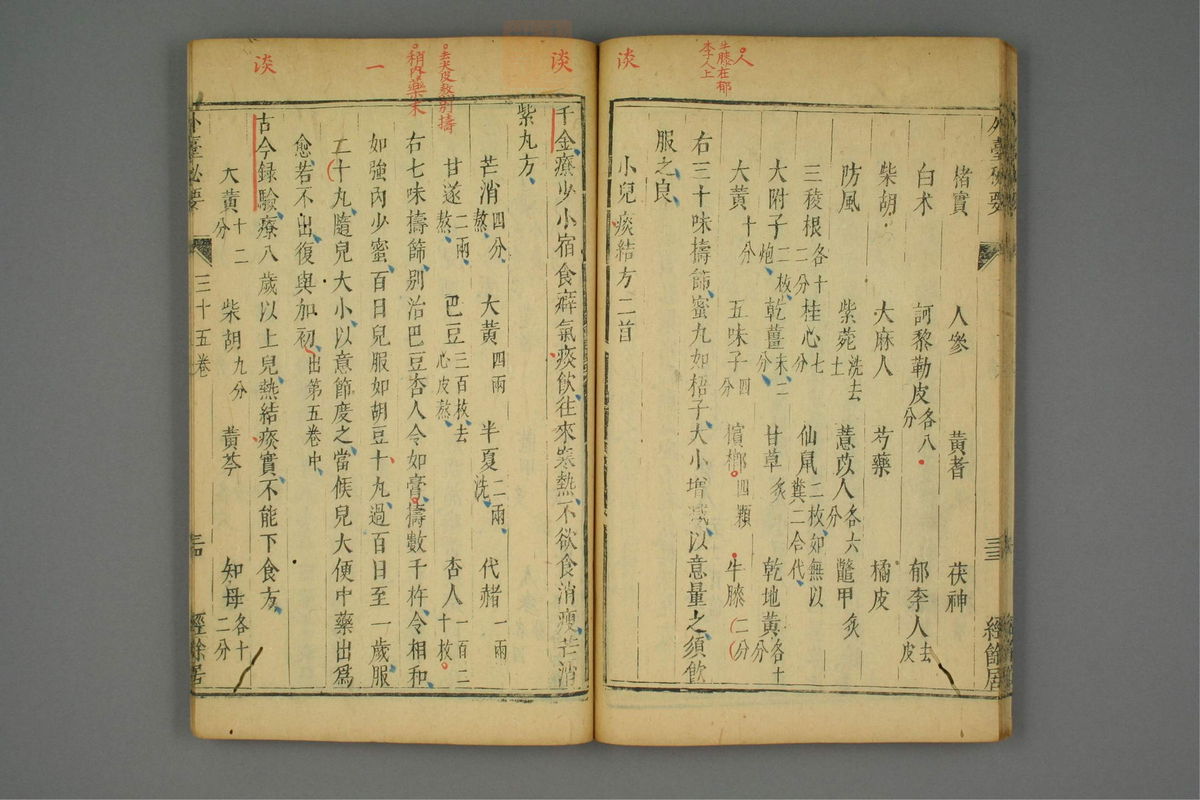 人
牛膝在郁
李人上
談
外臺秘要
三十三
經餘居
楮實 人參 黃耆 茯神
白术 訶黎勒皮各八分 郁李人去皮
柴胡 大麻人 芍藥 橘皮
防風 紫菀洗去土 薏苡人各六分 鼈甲炙
三稜根各十二分 桂心七分 仙鼠糞二合代二枚如無以
大附子二枚炮 乾薑末二分 甘草炙 乾地黃各十分
大黃十分 五味子四分 檳榔四顆 牛膝二分
右三十味擣篩蜜丸如梧子大小增減以意量之須飲
服之良
小兒痰結方二首
談
去大皮熬別擣
稍內藥末
一
談
千金療少小宿食癖氣痰飲往來寒熱不欲食消瘦芒消
紫丸方
芒消四分熬 大黃四兩 半夏二兩洗 代赭一兩
甘遂二兩熬 巴豆三百枚去心皮熬 杏人一百二十枚
右七味擣篩別治巴豆杏人令如膏擣數千杵令相和
如強內少蜜百日兒服如胡豆十丸過百日至一歲服
二十丸隨兒大小以意節度之當候兒大便中藥出爲
愈若不出復與如初出第五卷中
古今録驗療八歲以上兒熱結痰實不能下食方
大黃十二分 柴胡九分 黃芩 知母各十二分
外臺秘要
三十五卷
經餘居